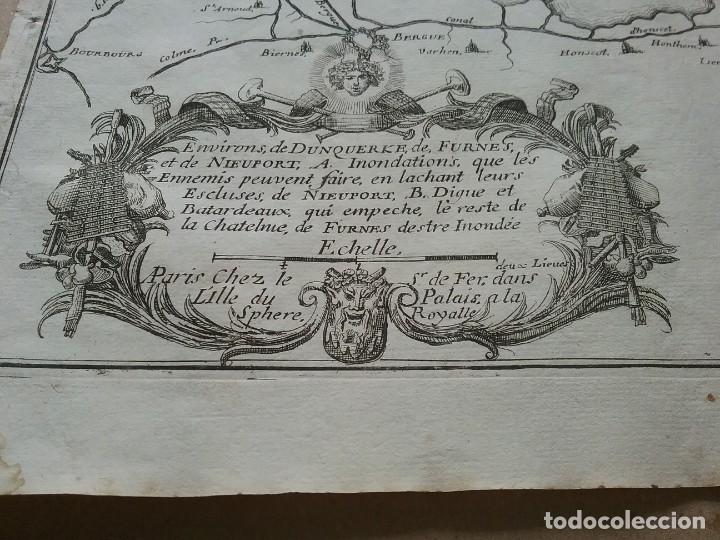 St Arnoud
Bergue
Canal
BOURBOURG
Colme
Pr.
Biernes
BERGUE
Varhen
Honscot
dhonscot
Honthem
Environs, de DUNQUERKE, de, FURNES,
et de NIEUPORT, A. Inondations, que les
Ennemis peuvent faire, en lachant leurs
Escluses, de NIEUPORT, B. Digue et
Batardeaux, qui empeche, le reste de
la Chatelnie, de FURNES destre Inondée
Echelle,
deux Lieues
Paris Chez le Sr. de Fer, dans
Lille du Palais, a la
Sphere, Royalle
todocoleccion.net